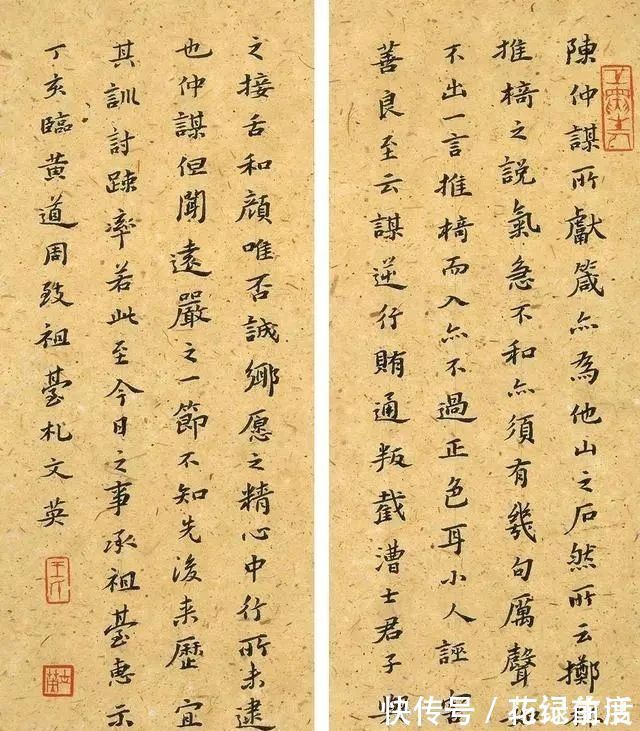 陳仲謀所獻箴亦為他山之石然所云擲
推椅之說氣急不和亦須有幾句厲聲如
不出一言推椅而入亦不過正色耳小人誣害
善良至云謀逆行賄通叛截漕士君子與
之接舌和顏唯否誠鄉愿之精心中行所未逮
也仲謀但聞遠嚴之一節不知先後来歷宜
其訓討疎率若此至今日之事承祖臺惠示
丁亥臨黃道周致祖臺札文英
快传号/花绿